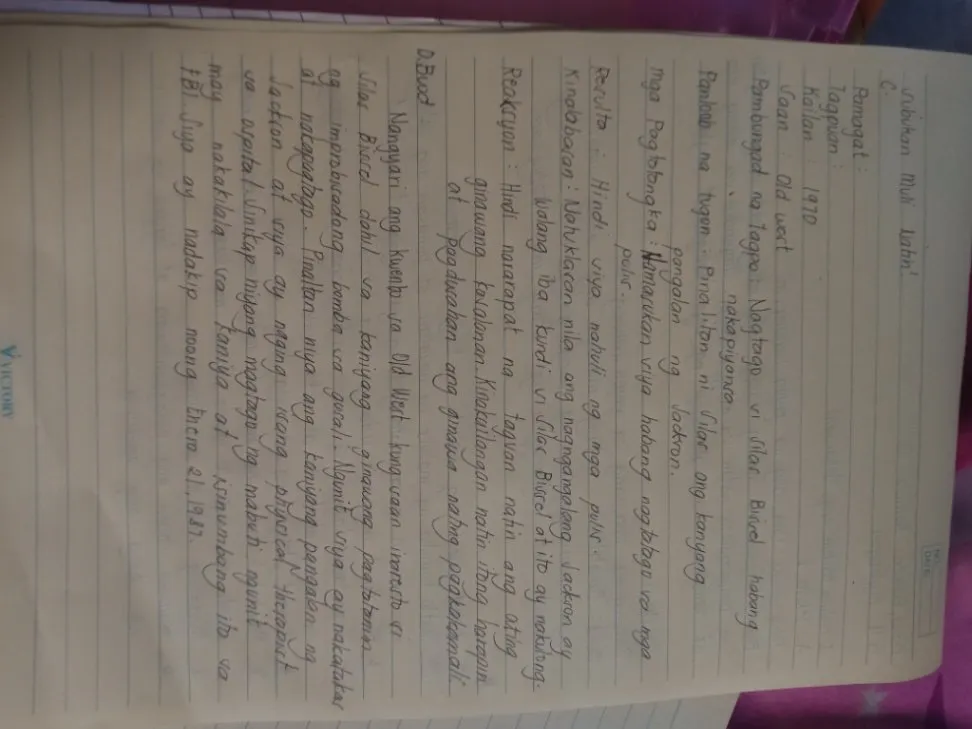 Subukan Muli Natin!
C.
Pamagat:
Tagpuan:
Kailan 1970
Saan Old west
Pambungad na Tagpo: Nagtago si Silas Bissel habang
nakapiyansa
Panloob na tugon: Pinalitan ni Silas ang kanyang
pangalan ng Jackson.
mga Pagtatangka: Namasukan siya habang nagtatago sa mga
pulis.
Resulta: Hindi siya nahuli ng mga pulis.
Kinalabasan: Natuklasan nila ang nagngangalang Jackson ay
walang iba kundi si Silas Bissel at ito ay nakulong.
Reaksyon: Hindi nararapat na taguan natin ang ating
ginawang kasalanan. Kinakailangan natin itong harapin
at pagdusahan ang ginawa nating pagkakamali
D. Buod
Nangyari ang kwento sa Old West kung saan inaresto si
Silas Bissel dahil sa kaniyang ginawang pagtatanim
ng imorobisadang bomba sa gusali. Ngunit siya ay nakatakas
at nakapagtago. Pinaltan niya ang kaniyang pangalan ng
Jackson at siya ay naging isang physical therapist
sa ospital. Sinikap niyang magtago ng mabuti ngunit
may nakakilala sa kaniya at isinumbong ito sa
FBI siya ay nadakip noong Enero 21, 1987.
VICTORY